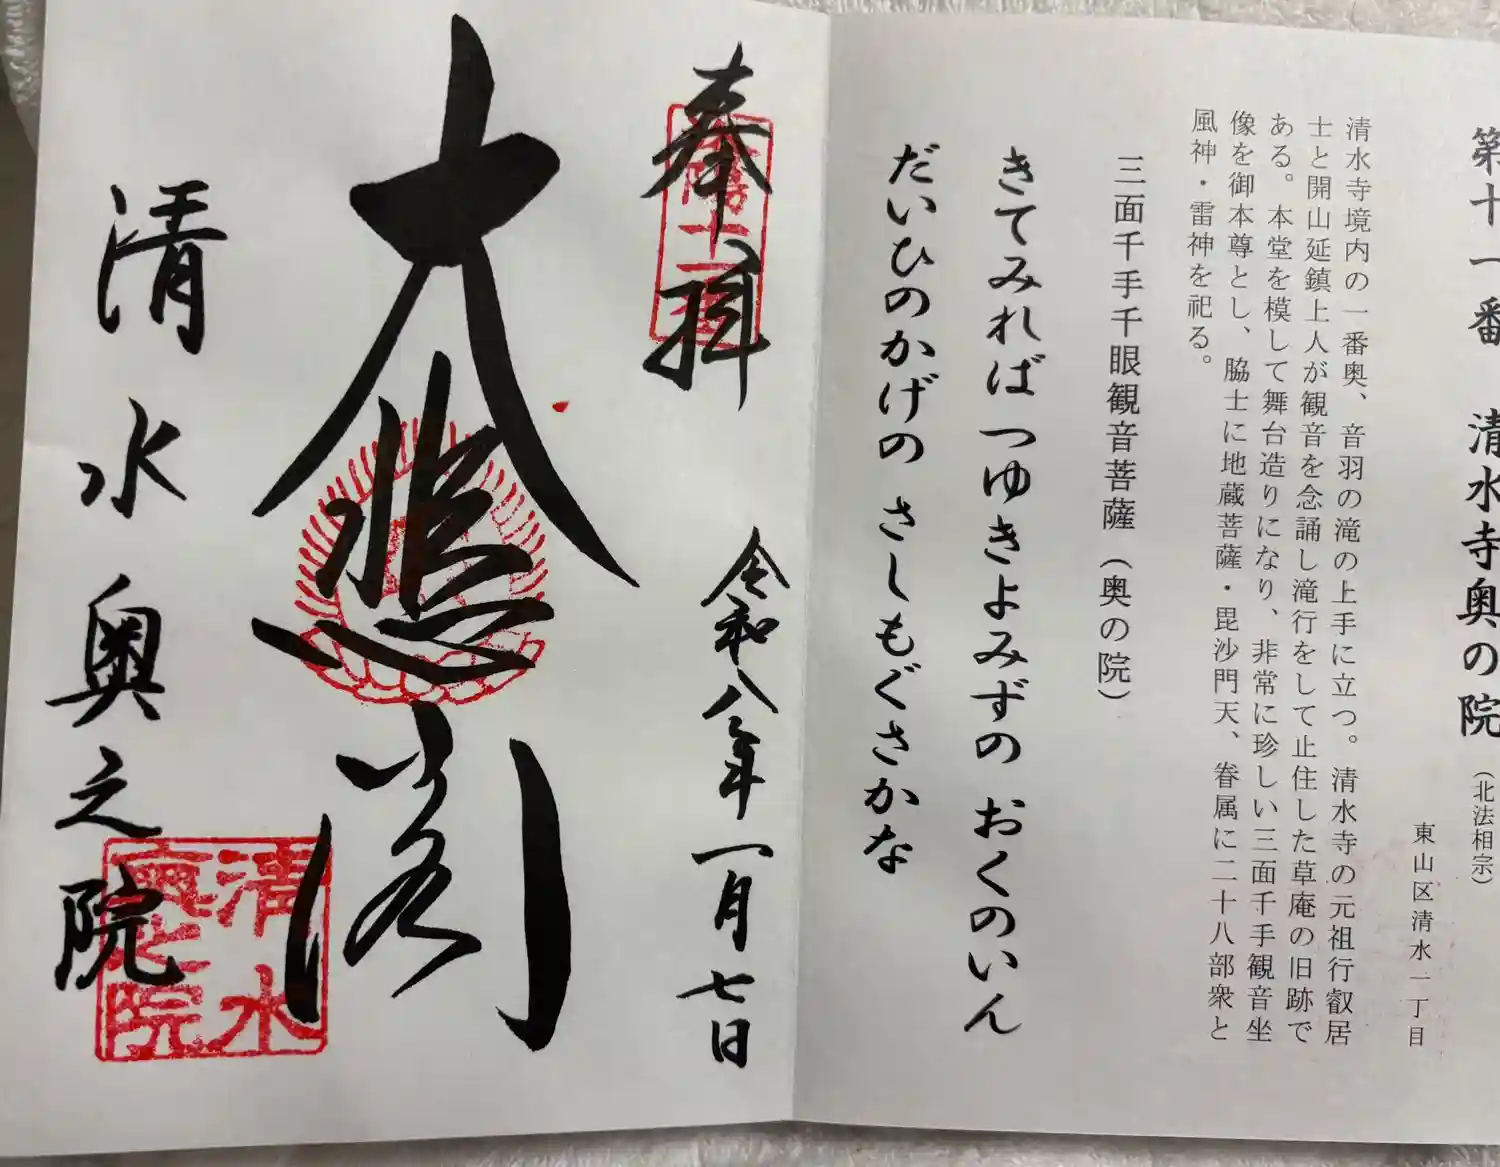 第十一番 清水寺奥の院（北法相宗）
東山区清水一丁目
清水寺境内の一番奥、音羽の滝の上手に立つ。清水寺の元祖行叡居
士と開山延鎮上人が観音を念誦し滝行をして止住した草庵の旧跡で
ある。本堂を模して舞台造りになり、非常に珍しい三面千手観音坐
像を御本尊とし、脇士に地蔵菩薩・毘沙門天、眷属に二十八部衆と
風神・雷神を祀る。
三面千手千眼観音菩薩（奥の院）
きてみれば つゆきよみずの おくのいん
だいひのかげの さしもぐさかな
奉拝
令和八年一月七日
大悲閣
清水奥之院
清水
奥之院